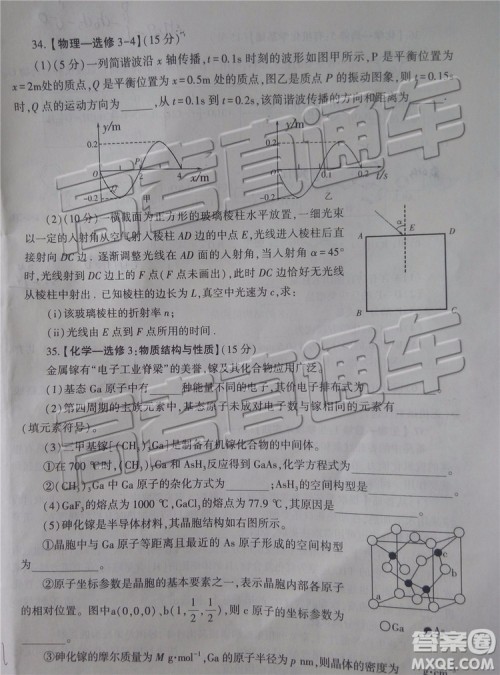 34.【物理—选修3-4】(15分)
(1)(5分)一列简谐波沿x轴传播,t=0.1s时刻的波形如图甲所示,P是平衡位置为
x=2m处的质点,Q点是平衡位置为x=0.5m处的质点,图乙是质点P的振动图象,则t=0.15s
时,Q点的运动方向为______,从t=0.1s到t=0.2s,该简谐波传播的方向和距离为______。
y/m
0.2
0
2
4
x/m
-0.2
甲
y/m
0.2
0
0.1
0.2
t/s
-0.2
乙
(2)(10分)一横截面为正方形的玻璃棱柱水平放置,一细光束
以一定的入射角从空气射入棱柱AD边的中点E,光线进入棱柱后
射向DC边。逐渐调整光线在AD面的入射角,当入射角α=45°
时,光线射到DC边上的F点(F点未画出),此时DC边恰好无光线
从棱柱中射出.已知棱柱的边长为L,真空中光速为c,求:
(i)该玻璃棱柱的折射率n;
(ii)光线由E点到F点所用的时间.
A
E
D
α
B
C
35.【化学—选修3:物质结构与性质】(15分)
金属镓有“电子工业脊梁”的美誉,镓及其化合物应用广泛。
(1)基态Ga原子中有______种能量不同的电子,其价电子排布式为______。
(2)第四周期的主族元素中,基态原子未成对电子数与镓相同的元素有______
(填元素符号)。
(3)三甲基镓[(CH₃)₃Ga]是制备有机镓化合物的中间体。
①在700 ℃时,(CH₃)₃Ga和AsH₃反应得到GaAs,化学方程式为______。
②(CH₃)₃Ga中Ga的杂化方式为______;AsH₃的空间构型是______。
(4)GaF₃的熔点为1000 ℃,GaCl₃的熔点为77.9 ℃,其原因是______。
(5)砷化镓是半导体材料,其晶胞结构如右图所示。
①晶胞中与Ga原子等距离且最近的As原子形成的空间构型
为______。
②原子坐标参数是晶胞的基本要素之一,表示晶胞内部各原子
的相对位置。图中a(0,0,0)、b(1,1/2,1/2),则c原子的坐标参数为
______。
③砷化镓的摩尔质量为M g·mol⁻¹,Ga的原子半径为p nm,则晶体的密度为______g·cm⁻³
a
b
c
Ga
As
高考直通车
高考直通车
答案圈
MXQE.COM